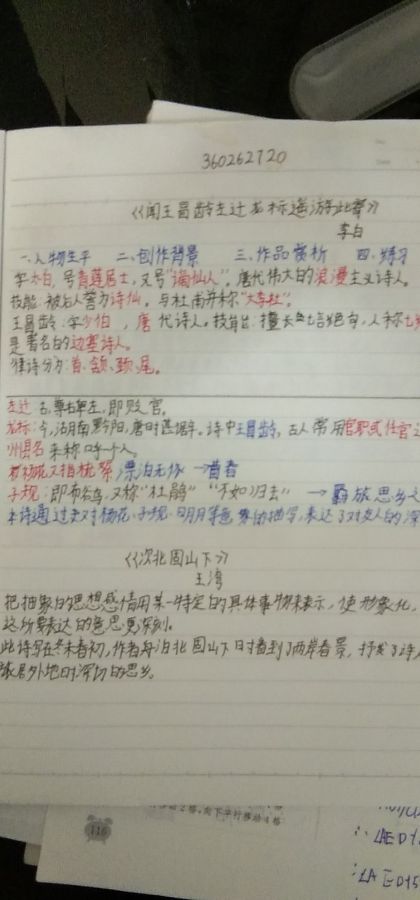 360262720
《闻王昌龄左迁龙标遥有此寄》
李白
一、人物生平 二、创作背景 三、作品赏析 四、练习
字太白，号青莲居士，又号"谪仙人"。唐代伟大的浪漫主义诗人。
技能：被后人誉为诗仙，与杜甫并称"大李杜"。
王昌龄：字少伯，唐代诗人。技能：擅长七言绝句，人称七
是著名的边塞诗人。
律诗分为：首、颔、颈、尾。
左迁：古尊右卑左，即贬官。
龙标：今湖南黔阳，唐时甚偏僻。诗中王昌龄，古人常用官职或任官
州县名来称呼一个人。
杨花又指柳絮 漂泊无依
子规：即布谷鸟，又称"杜鹃" "不如归去" → 羁旅思乡之
本诗通过对杨花、子规、明月等意象的描写，表达了对友人的深
《次北固山下》
王湾
把抽象的思想感情用某一特定的具体事物来表示，使形象化，
这所要表达的意思更深刻。
此诗写在冬末春初，作者舟泊北固山下时看到了两岸春景，抒发了诗人
旅居外地时深切的思乡。
向下平行移动4格
116
∴ ∠AED
∴ ∠AED